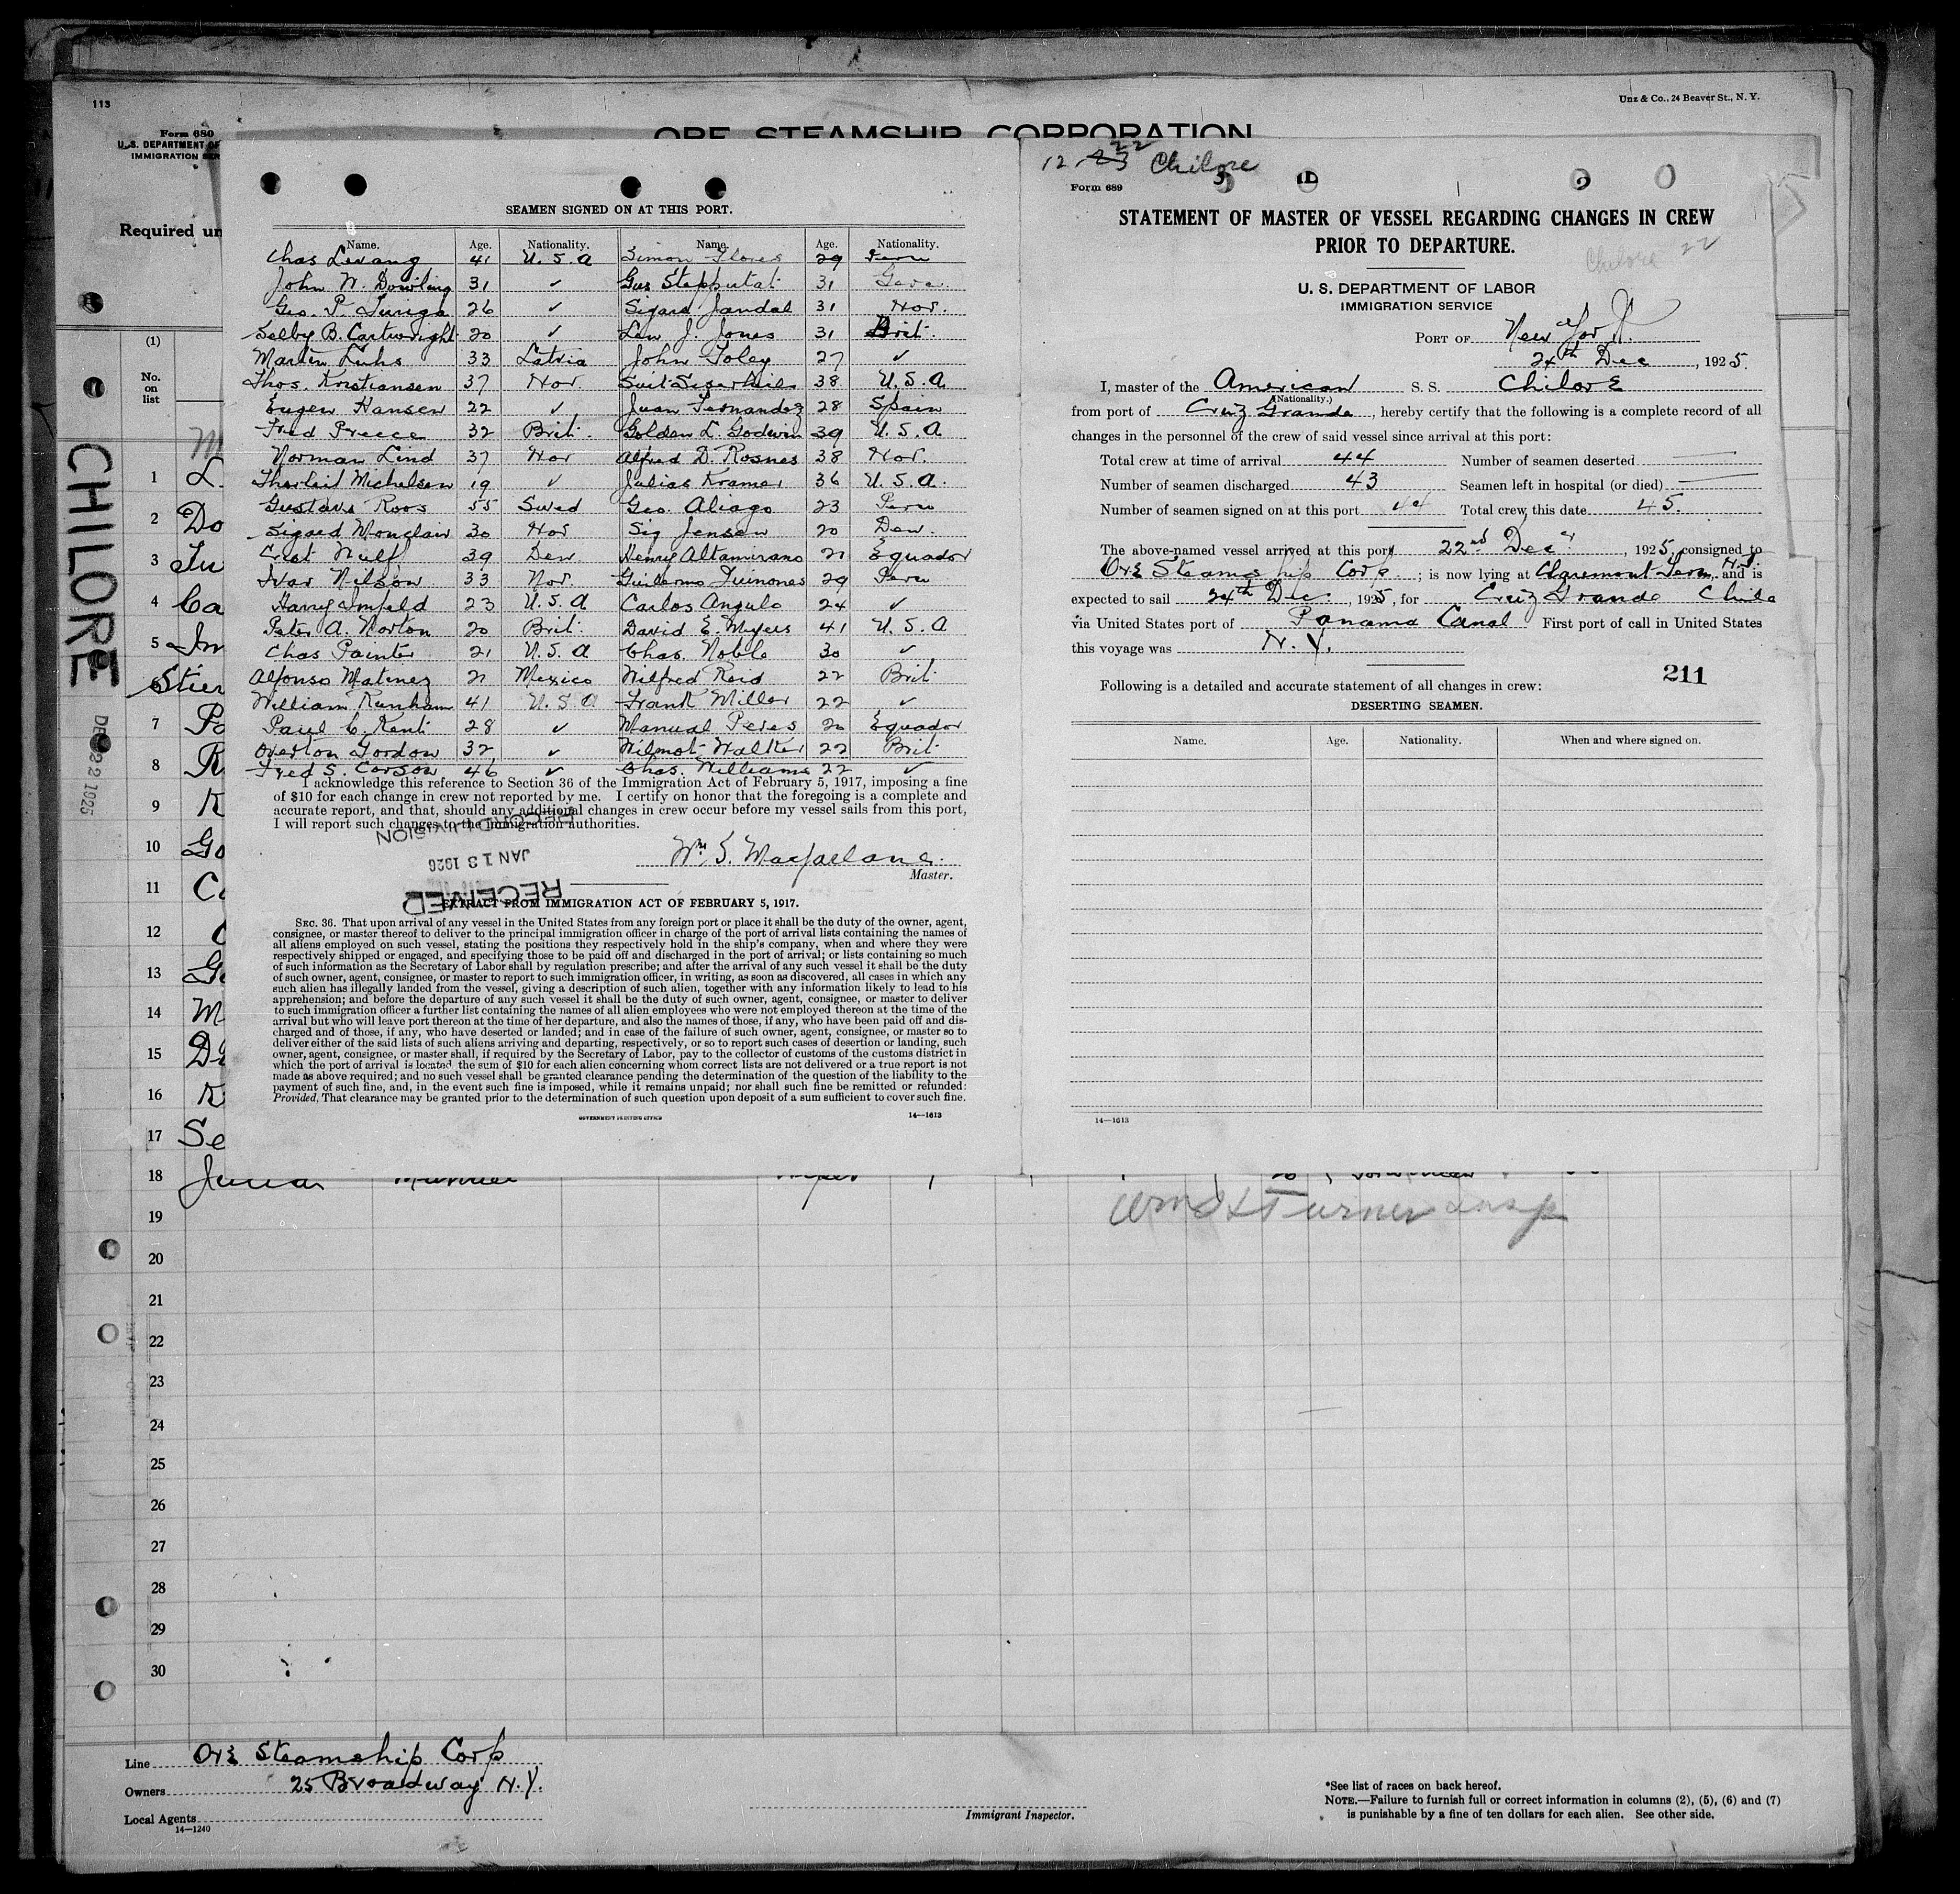 113
Unz & Co., 24 Beaver St., N. Y.
Form 680
U.S. DEPARTMENT OF
IMMIGRATION SER
ORE STEAMSHIP CORPORATION
Required un
(1)
No.
on
list
CHILORE
DEC 22 1925
1 L.
2 Do
3 Tu
4 Ca
5 Im
6 Stier
7 Po
8 R
9 K
10 Go
11 Co
12 C
13 Ge
14 M
15 De
16 K
17 Se
18
19
20
21
22
23
24
25
26
27
28
29
30
SEAMEN SIGNED ON AT THIS PORT.
Name. Age. Nationality. Name. Age. Nationality.
Chas Levang 41 U.S.A Simon Flores 29 Peru
John W. Dowling 31 ✓ Gus Stepputat 31
Geo. P. 26 ✓ Sigard Jandal 31 Nor.
Selby B. Cartwright 20 ✓ Len J. Jones 31 Brit.
Martin Luhs 33 Latvia John Foley 27 ✓
Thos. Kristiansen 37 Nor 38 U.S.A
Eugen Hansen 22 ✓ Juan Fernandez 28 Spain
Fred Preece 32 Brit. Golden L. Godwin 39 U.S.A
Norman Lind 37 Nor Alfred D. Rosnes 38 Nor.
Thorleif Michelsen 19 ✓ Julius Kramer 36 U.S.A.
Gustave Roos 55 Swed Geo. Aliago 23 Peru
Sigard Monclair 30 Nor Sig Jensen 20 Den.
Crist Nulf 39 Den. Henry Altamirano 21 Equador
Ivar Nilson 33 Nor. Guillermo Quinones 29 Peru
Harry Imfeld 23 U.S.A Carlos Angulo 24 ✓
Peter A. Norton 20 Brit. David E. Myers 41 U.S.A
Chas Painter 21 U.S.A Chas. Noble 30 ✓
Alfonso Matinez 21 Mexico Wilfred Reid 22 Brit.
William Runham 41 U.S.A Frank Miller 22 ✓
Paul C. Kent 28 ✓ Manual Peres 20 Equador
Overton Gordon 32 ✓ Wilmot Walter 22 Brit
Fred S. Corson 46 ✓ Chas. Williams 22 ✓
I acknowledge this reference to Section 36 of the Immigration Act of February 5, 1917, imposing a fine
of $10 for each change in crew not reported by me. I certify on honor that the foregoing is a complete and
accurate report, and that, should any additional changes in crew occur before my vessel sails from this port,
I will report such changes to the immigration authorities.
RECORD DIVISION
JAN 13 1926
RECEIVED
Wm S. Macfarlane.
Master.
EXTRACT FROM IMMIGRATION ACT OF FEBRUARY 5, 1917.
SEC. 36. That upon arrival of any vessel in the United States from any foreign port or place it shall be the duty of the owner, agent,
consignee, or master thereof to deliver to the principal immigration officer in charge of the port of arrival lists containing the names of
all aliens employed on such vessel, stating the positions they respectively hold in the ship's company, when and where they were
respectively shipped or engaged, and specifying those to be paid off and discharged in the port of arrival; or lists containing so much
of such information as the Secretary of Labor shall by regulation prescribe; and after the arrival of any such vessel it shall be the duty
of such owner, agent, consignee, or master to report to such immigration officer, in writing, as soon as discovered, all cases in which any
such alien has illegally landed from the vessel, giving a description of such alien, together with any information likely to lead to his
apprehension; and before the departure of any such vessel it shall be the duty of such owner, agent, consignee, or master to deliver
to such immigration officer a further list containing the names of all alien employees who were not employed thereon at the time of the
arrival but who will leave port thereon at the time of her departure, and also the names of those, if any, who have been paid off and dis-
charged and of those, if any, who have deserted or landed; and in case of the failure of such owner, agent, consignee, or master so to
deliver either of the said lists of such aliens arriving and departing, respectively, or so to report such cases of desertion or landing, such
owner, agent, consignee, or master shall, if required by the Secretary of Labor, pay to the collector of customs of the customs district in
which the port of arrival is located the sum of $10 for each alien concerning whom correct lists are not delivered or a true report is not
made as above required; and no such vessel shall be granted clearance pending the determination of the question of the liability to the
payment of such fine, and, in the event such fine is imposed, while it remains unpaid; nor shall such fine be remitted or refunded:
Provided, That clearance may be granted prior to the determination of such question upon deposit of a sum sufficient to cover such fine.
GOVERNMENT PRINTING OFFICE 14—1613
12. 23 22 Chilore
Form 689
STATEMENT OF MASTER OF VESSEL REGARDING CHANGES IN CREW
PRIOR TO DEPARTURE.
Chilore 22
U. S. DEPARTMENT OF LABOR
IMMIGRATION SERVICE
PORT OF New York
24th Dec, 1925.
I, master of the American S. S. Chilore
(Nationality.)
from port of Cruz Grande, hereby certify that the following is a complete record of all
changes in the personnel of the crew of said vessel since arrival at this port:
Total crew at time of arrival 44 Number of seamen deserted
Number of seamen discharged 43 Seamen left in hospital (or died)
Number of seamen signed on at this port 44 Total crew, this date 45.
The above-named vessel arrived at this port 22nd Decr, 1925, consigned to
Ore Steamship Corp.; is now lying at Claremont Term, N.J. and is
expected to sail 24th Dec., 1925, for Cruz Grande Chile
via United States port of Panama Canal First port of call in United States
this voyage was N.Y.
211
Following is a detailed and accurate statement of all changes in crew:
DESERTING SEAMEN.
Name. Age. Nationality. When and where signed on.
14—1613
Turner Insp
Line Ore Steamship Corp
Owners 25 Broadway N.Y.
Local Agents
14—1240
Immigrant Inspector.
*See list of races on back hereof.
NOTE.—Failure to furnish full or correct information in columns (2), (5), (6) and (7)
is punishable by a fine of ten dollars for each alien. See other side.